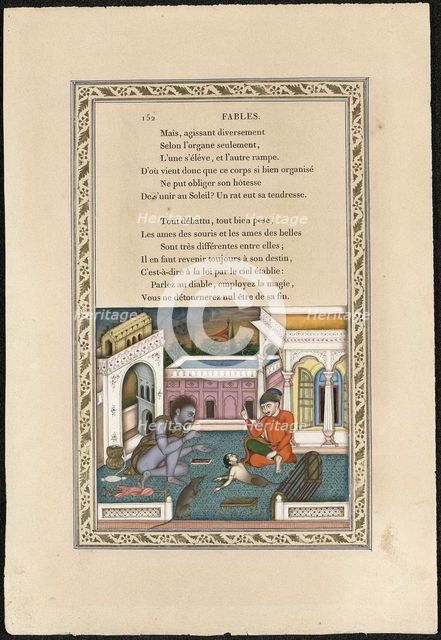 152 FABLES.
Mais, agissant diversement
Selon l'organe seulement,
L'une s'élève, et l'autre rampe.
D'où vient donc que ce corps si bien organisé
Ne put obliger son hôtesse
De s'unir au Soleil? Un rat eut sa tendresse.
Tout débattu, tout bien pesé,
Les ames des souris et les ames des belles
Sont très différentes entre elles;
Il en faut revenir toujours à son destin,
C'est-à-dire à la loi par le ciel établie:
Parlez au diable, employez la magie,
Vous ne détournerez nul être de sa fin.
Heritage
Heritage
Heritage
Heritage
Heritage
Heritage
Heritage
Heritage